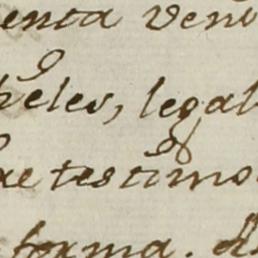 enta veni
peles, legal
de testimo
forma. d